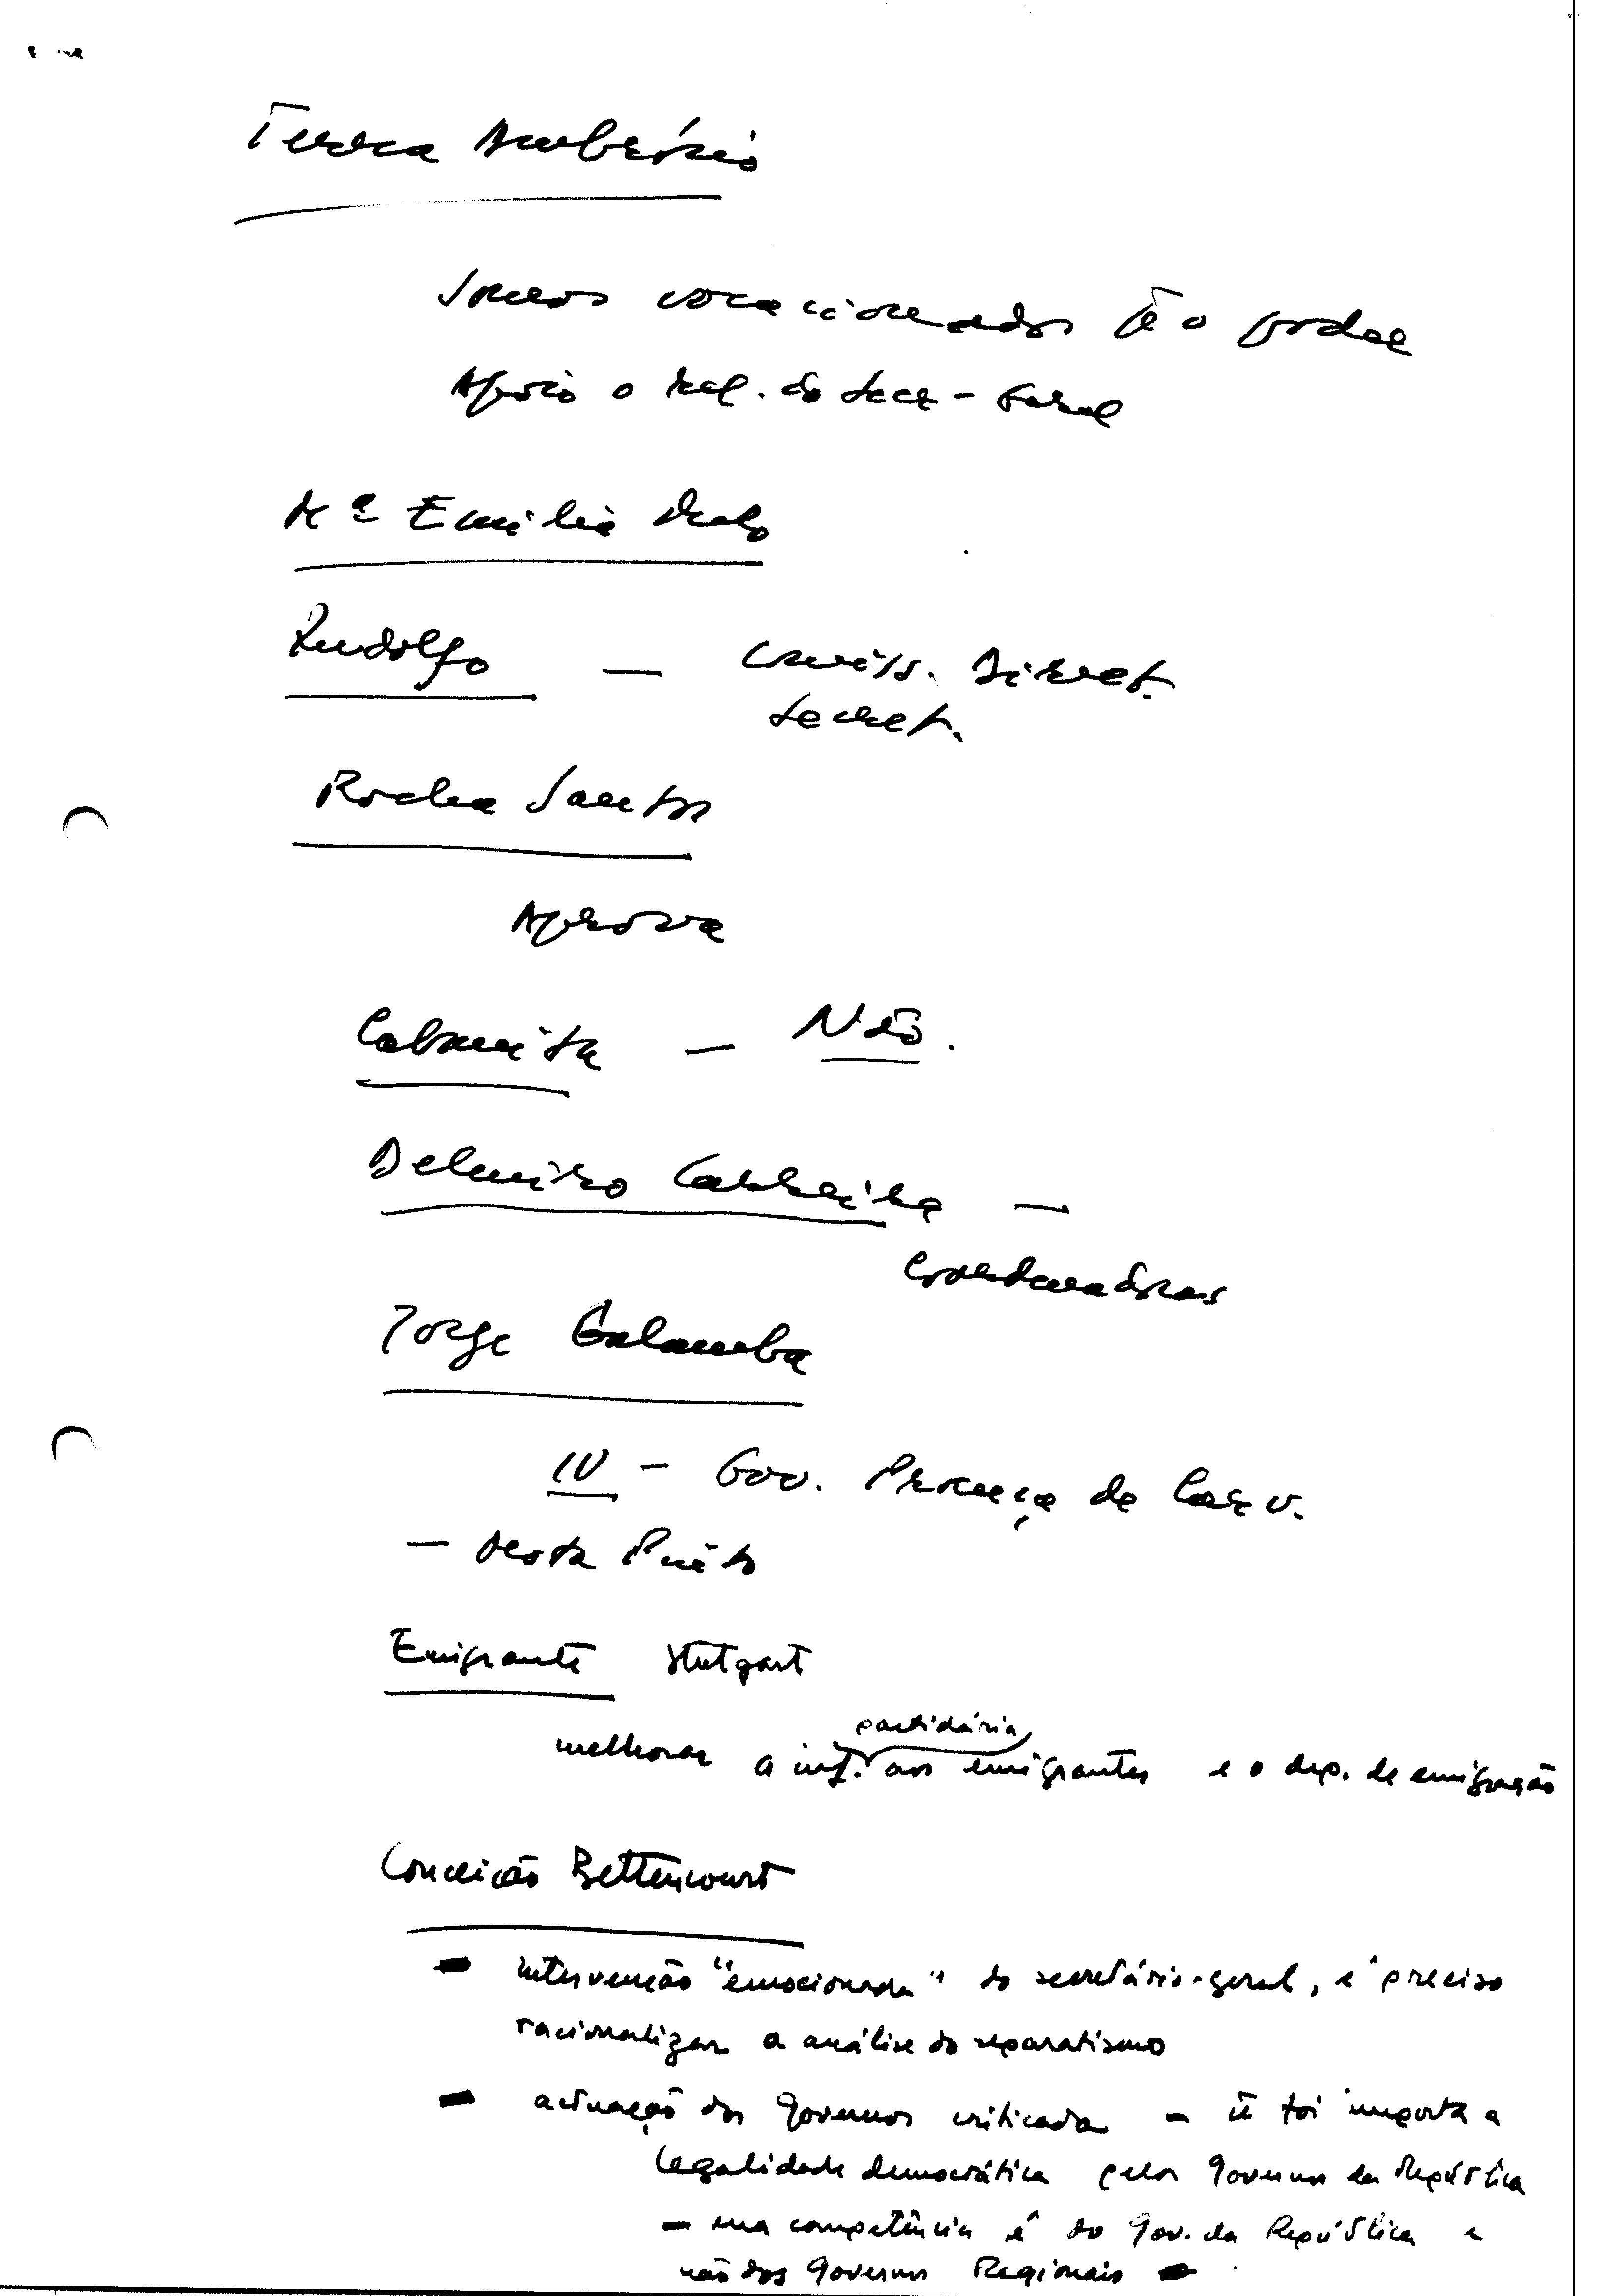 Teresa Ambrósio
Somos vocacionados p̄ o poder
Apoio o rel. do Secr-Geral
Mª Emilia Melo
Rudolfo — Comiss. Direct.
Secret.
Rocha Santos
Aprova
Cabrita — Não.
Delmiro Carreira —
Coordenadoras
Jorge Galamba
IV — Gov. Proença de Carv.
— Mota Pinto
Emigrante Stutgart
partidária
melhorar a inf. aos emigrantes e o dep. de emigração
Conceição Bettencourt
— intervenção "emocionada" do secretário-geral, é preciso
racionalizar a análise do separatismo
— actuação dos Governos criticada — ñ foi imposta a
legalidade democrática pelos Governos da República
— essa competência é do Gov. da República e
não dos Governos Regionais —